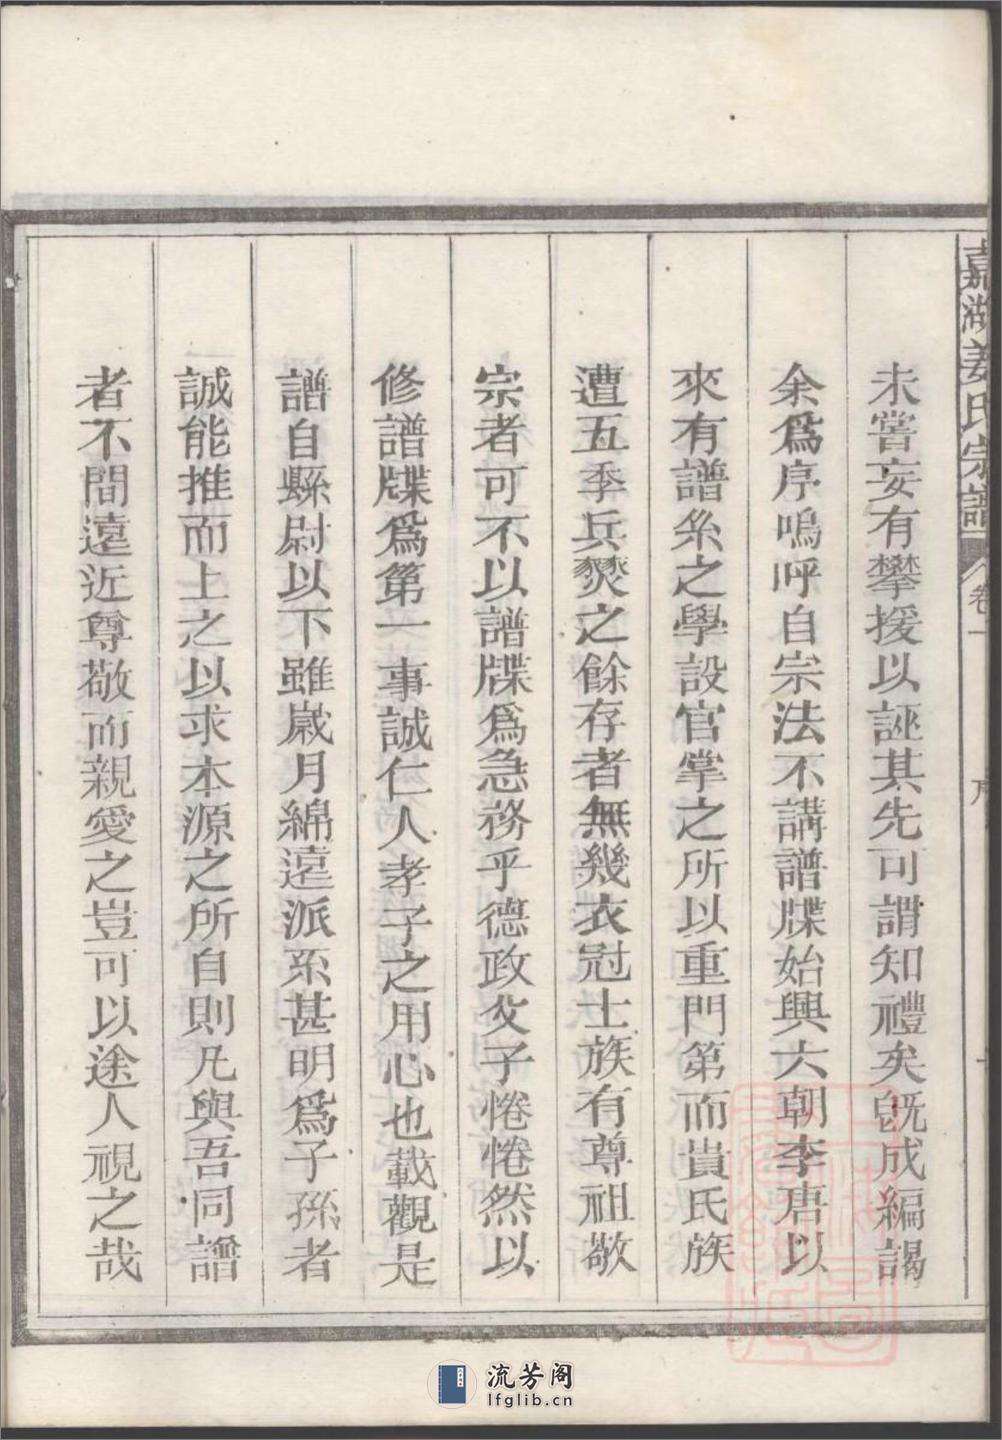 嘉湖姜氏宗譜 卷一 序
未嘗妄有攀援以誣其先可謂知禮矣旣成編謁
余爲序嗚呼自宗法不講譜牒始興六朝李唐以
來有譜系之學設官掌之所以重門第而貴氏族
遭五季兵燹之餘存者無幾衣冠士族有尊祖敬
宗者可不以譜牒爲急務乎德政父子惓惓然以
修譜牒爲第一事誠仁人孝子之用心也載觀是
譜自縣尉以下雖嵗月綿遠派系甚明爲子孫者
誠能推而上之以求本源之所自則凡與吾同譜
者不間遠近尊敬而親愛之豈可以途人視之哉
流芳阁
lfglib.cn